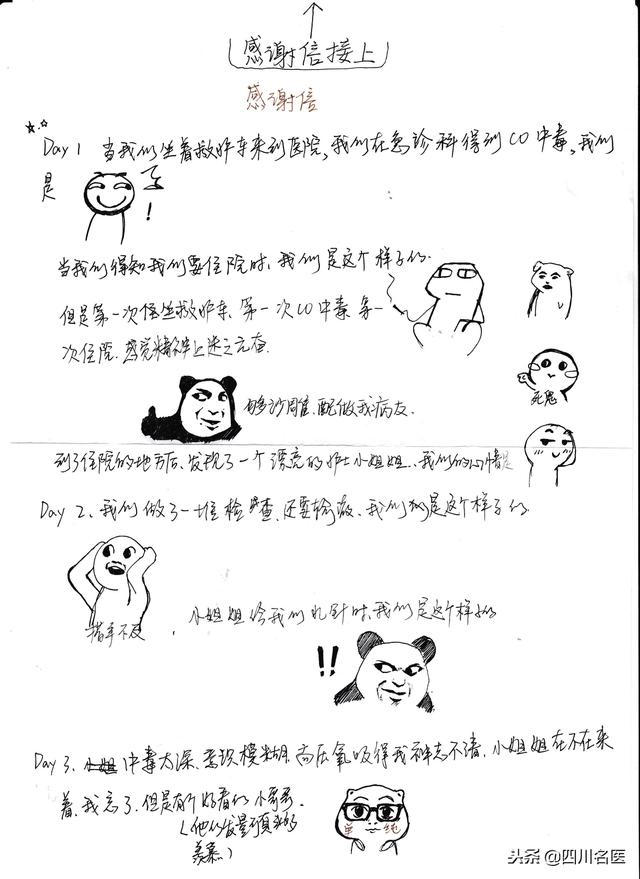 感谢信接上
感谢信
Day 1 当我们坐着救护车来到医院,我们在急诊科得到CO中毒,我们
是
!
当我们得知我们要住院时,我们是这个样子的
但是第一次住坐救护车、第一次CO中毒、第一
次住院.感觉精神上迷之亢奋.
够沙雕,配做我病友.
死鬼
到了住院的地方后,发现了一个漂亮的护士小姐姐..我们的心情是
Day 2、我们做了一堆检查,还要输液、我们是这个样子的
措手不及
小姐姐给我们扎针时,我们是这个样子的
!!
Day 3. 中毒太深,意识模糊.高压氧吸得我神志不清.小姐姐在不在来
着,我忘了.但是有个好看的小哥哥.
(他的发量
羡慕)
单 纯
头条@四川名医